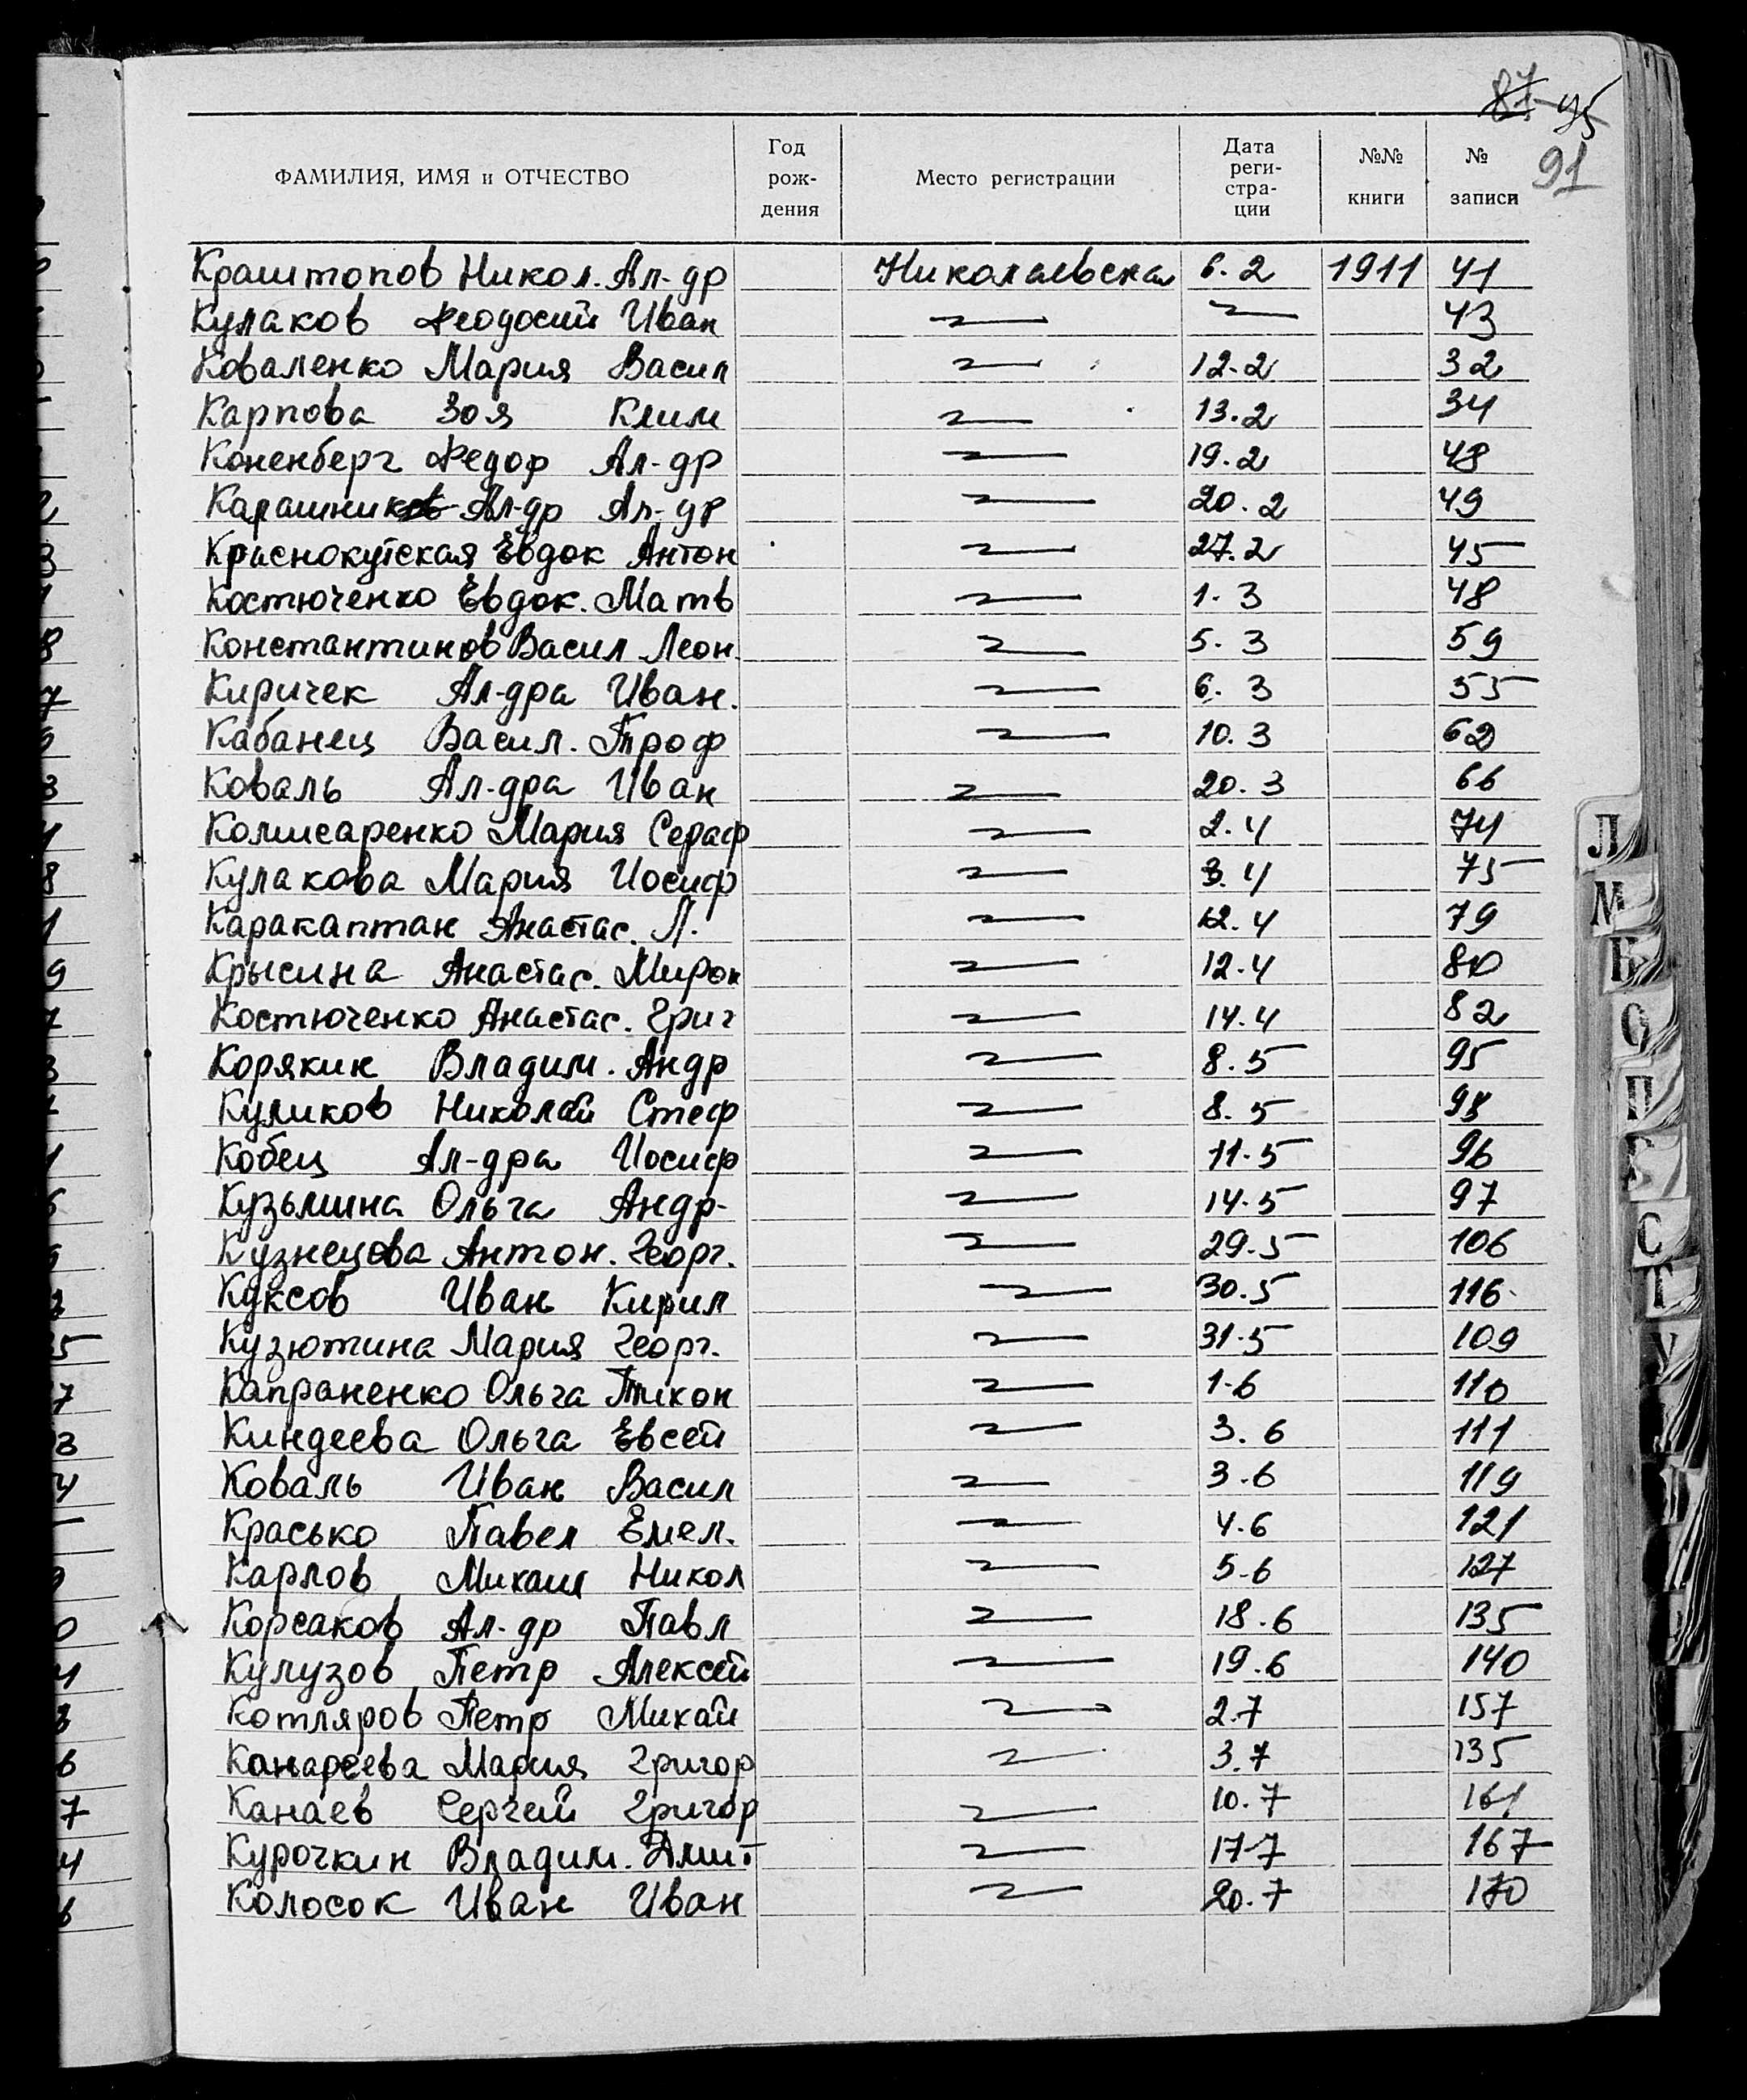 87 95
91
ФАМИЛИЯ, ИМЯ и ОТЧЕСТВО Год рож- дения Место регистрации Дата реги- стра- ции №№ книги № записи
Краштопов Никол. Ал-др Николаевская 6.2 1911 41
Кулаков Феодосий Иван 43
Коваленко Мария Васил 12.2 32
Карпова Зоя Клим 13.2 34
Коненберг Федор Ал-др 19.2 48
Карашников Ал-др Ал-др 20.2 49
Краснокутская Евдок Антон 27.2 45
Костюченко Евдок. Матв 1.3 48
Константинов Васил Леон. 5.3 59
Киричек Ал-дра Иван. 6.3 55
Кабанец Васил. Троф 10.3 62
Коваль Ал-дра Иван 20.3 66
Комисаренко Мария Сераф 2.4 74
Кулакова Мария Иосиф 3.4 75
Каракаптан Анастас. Л. 12.4 79
Крысина Анастас. Мирон 12.4 80
Костюченко Анастас. Григ 14.4 82
Корякин Владим. Андр 8.5 95
Куликов Николай Стеф 8.5 98
Кобец Ал-дра Иосиф 11.5 96
Кузьмина Ольга Андр- 14.5 97
Кузнецова Антон. Георг. 29.5 106
Куксов Иван Кирил 30.5 116
Кузютина Мария Георг. 31.5 109
Капраненко Ольга Тихон 1.6 110
Киндеева Ольга Евсей 3.6 111
Коваль Иван Васил 3.6 119
Красько Павел Емел. 4.6 121
Карлов Михаил Никол 5.6 127
Корсаков Ал-др Павл 18.6 135
Кулузов Петр Алексей 19.6 140
Котляров Петр Михай 2.7 157
Канареева Мария Григор 3.7 135
Канаев Сергей Григор 10.7 161
Курочкин Владим. Дмит 17.7 167
Колосок Иван Иван 20.7 170
Л
М
Н
О
П
Р
С
Т
У